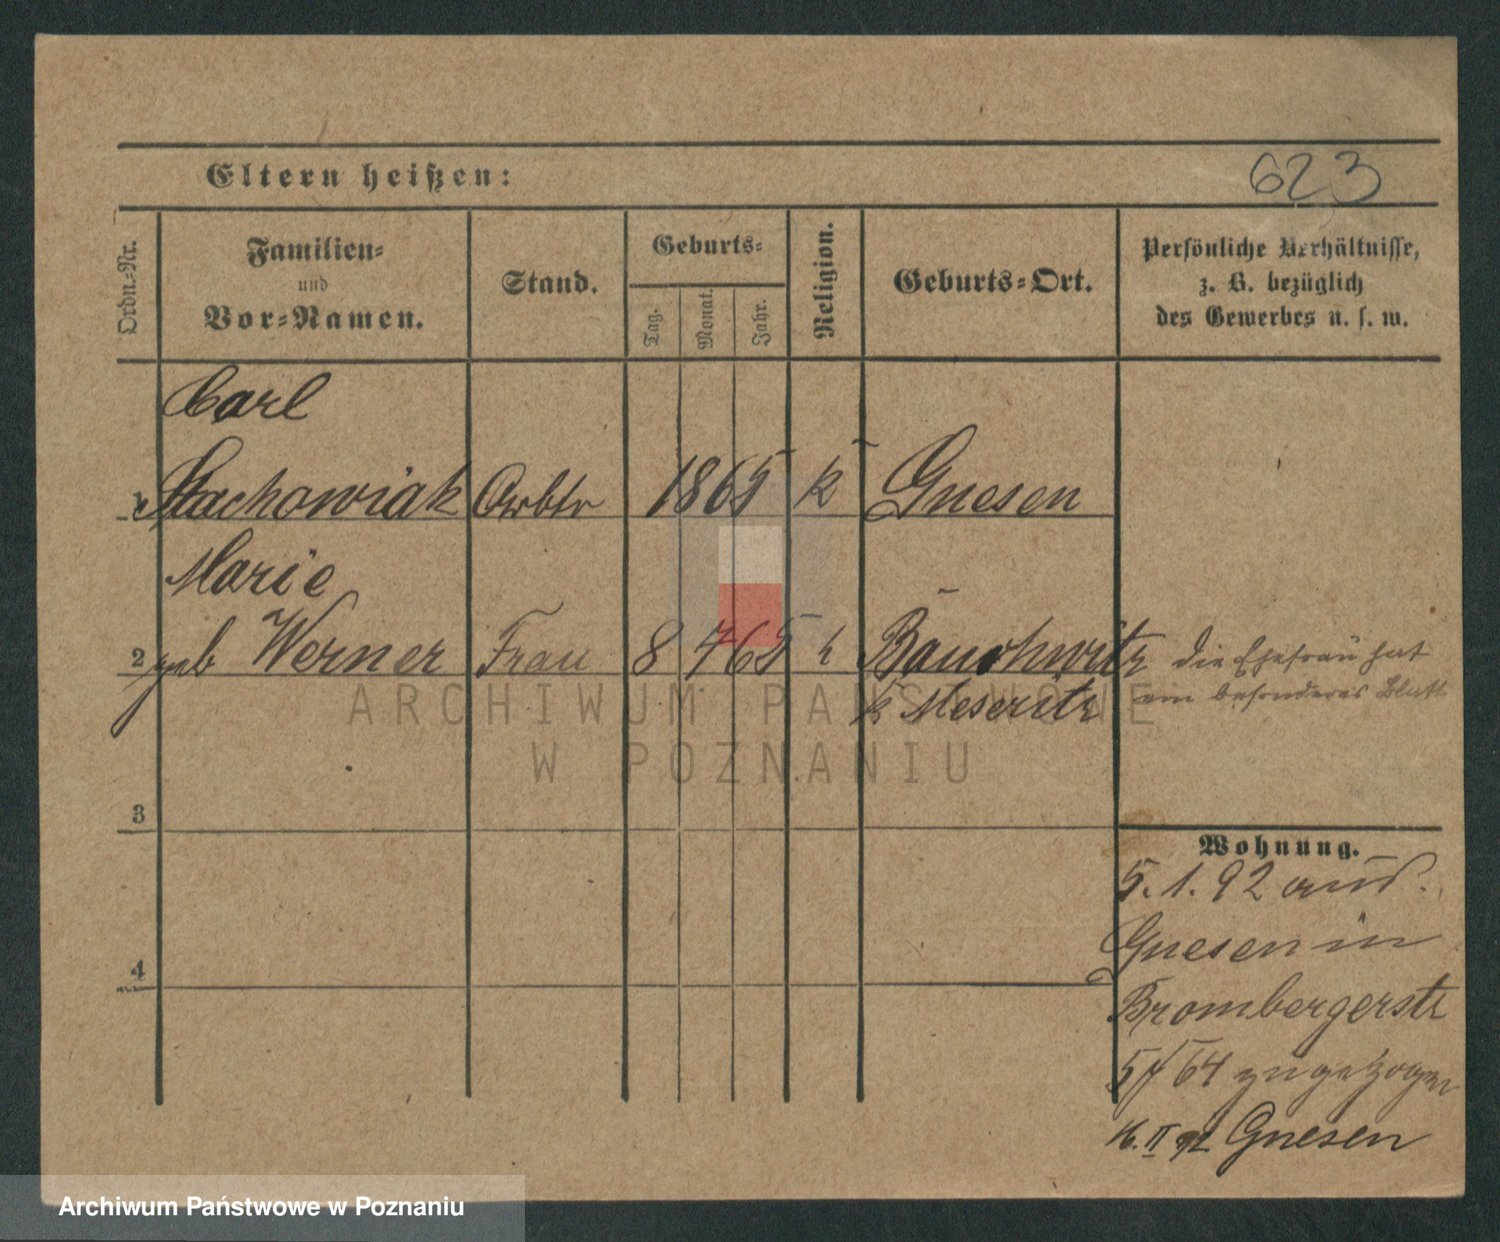 Eltern heißen:
623
Ordn.-Nr.
Familien-
und
Vor-Namen.
Stand.
Geburts-
Tag.
Monat.
Jahr.
Religion.
Geburts-Ort.
Persönliche Verhältnisse,
z. B. bezüglich
des Gewerbes u. s. w.
Carl
1 Stachowiak Arbtr 1865 k Gnesen
Marie
2 geb Werner Frau 8 7 65 k Bauchwitz
k Meseritz
die Ehefrau hat
ein besonderes Blatt
3
Wohnung.
5.1.92 aus
Gnesen in
4
Brombergerstr
64 zugezogen
16. II 92 Gnesen
ARCHIWUM PAŃSTWOWE
W POZNANIU
Archiwum Państwowe w Poznaniu